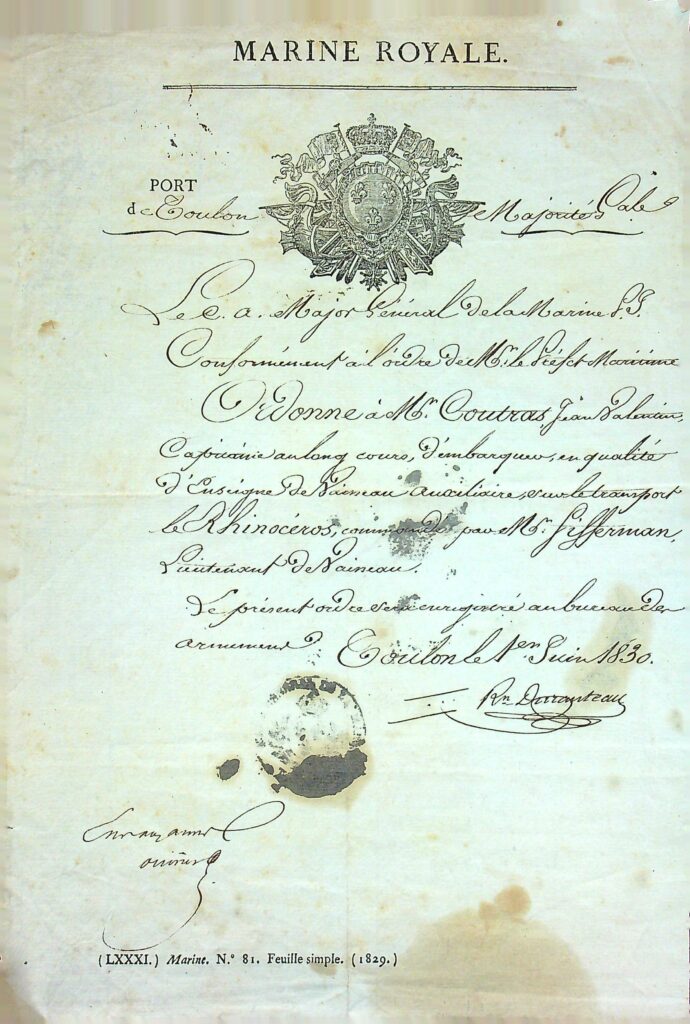 MARINE ROYALE.
PORT
de Toulon
Majorité Gale
Le C. A. Major Général de la Marine P. I.
Conformément à l'ordre de Mr. le Préfet Maritime
Ordonne à Mr. Coutras, Jean Valentin,
Capitaine au long cours, d'embarquer, en qualité
d'Enseigne de Vaisseau auxiliaire, sur le transport
le Rhinocéros, commandé par Mr. Fisserman,
Lieutenant de Vaisseau.
Le présent ordre sera enregistré au bureau des
armements Toulon le 1er Juin 1830.
(LXXXI.) Marine. N.° 81. Feuille simple. (1829.)